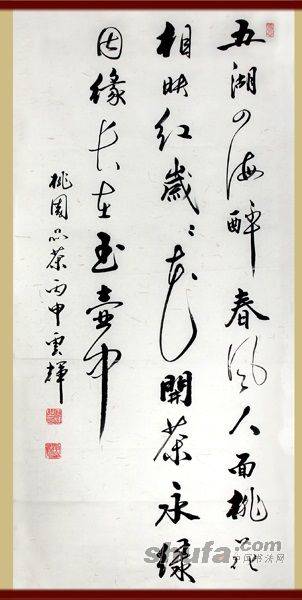 五湖四海醉春风人面桃花
相映红岁岁花开茶永绿
因缘长在玉壶中
桃園品茶丙申雲輝
shufa.com
中国书法网